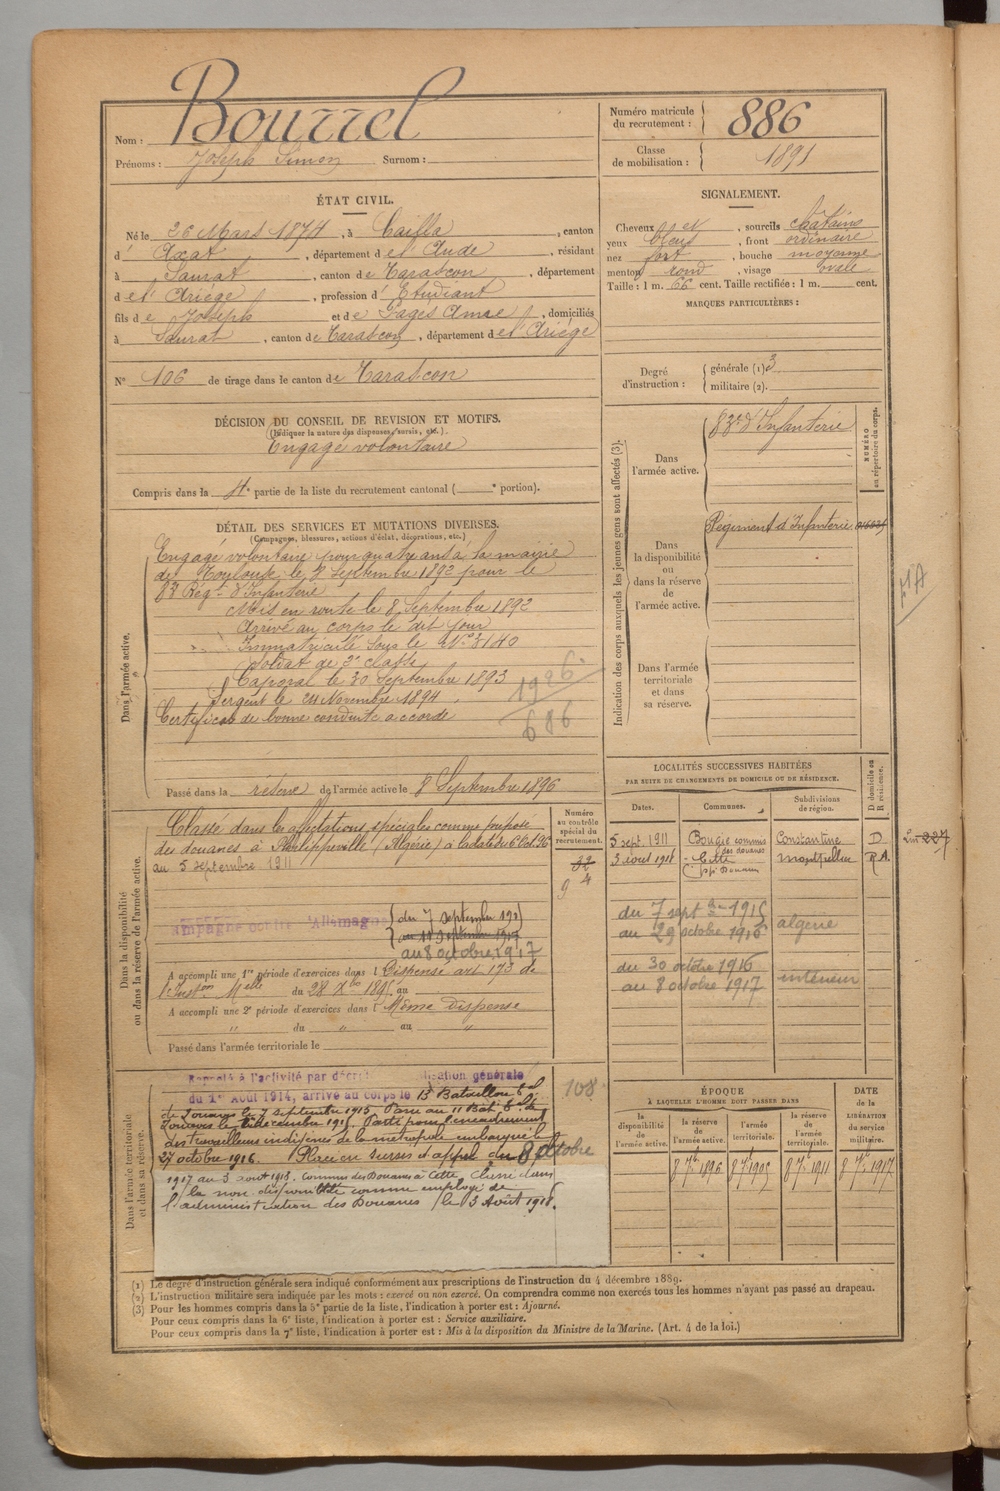 Nom : Bourrel
Prénoms : Joseph Simon Surnom :
Numéro matricule du recrutement : 886
Classe de mobilisation : 1891
ÉTAT CIVIL.
Né le 26 Mars 1874, à Cailla, canton
d' Axat, département de l'Aude, résidant
à Saurat, canton de Tarascon, département
de l'Ariège, profession d' Etudiant
fils de Joseph et de Pagès Anne, domiciliés
à Saurat, canton de Tarascon, département de l'Ariège
N° 106 de tirage dans le canton de Tarascon
SIGNALEMENT.
Cheveux et, sourcils châtains
yeux bleus, front ordinaire
nez fort, bouche moyenne
menton rond, visage ovale
Taille : 1 m. 66 cent. Taille rectifiée : 1 m. cent.
MARQUES PARTICULIÈRES :
Degré d'instruction : générale (1) 3
militaire (2).
DÉCISION DU CONSEIL DE REVISION ET MOTIFS.
(Indiquer la nature des dispenses, sursis, etc.)
Engagé volontaire
Compris dans la 4e partie de la liste du recrutement cantonal ( e portion).
DÉTAIL DES SERVICES ET MUTATIONS DIVERSES.
(Campagnes, blessures, actions d'éclat, décorations, etc.)
Dans l'armée active.
Engagé volontaire pour quatre ans à la mairie
de Toulouse le 8 Septembre 1892 pour le
83 Régt d'Infanterie
Mis en route le 8 Septembre 1892
Arrivé au corps le dit jour
Immatriculé sous le N° 3140
Soldat de 2e classe
Caporal le 30 Septembre 1893
Sergent le 24 Novembre 1894
Certificat de bonne conduite accordé
1926
686
Passé dans la réserve de l'armée active le 8 Septembre 1896
Dans la disponibilité ou dans la réserve de l'armée active.
Numéro au contrôle spécial du recrutement.
Classé dans les affectations spéciales comme préposé
des douanes à Philippeville (Algérie) à la date du 6 Oct. 96
au 5 septembre 1911
Campagne contre l'Allemagne du 7 septembre 191
au 8 octobre 1917
A accompli une 1re période d'exercices dans l Dispense art. 173 de
l'Inston Melle du 28 Xbre 1895 au
A accompli une 2e période d'exercices dans l Même Dispense
du " au "
Passé dans l'armée territoriale le
Dans l'armée territoriale et dans sa réserve.
Rappelé à l'activité par décret mobilisation générale
du 1er Août 1914, arrivé au corps le 13 Bataillon tal
de Zouaves le 7 septembre 1915. Passé au 11 Bat. tal de
Zouaves le décembre 1915. Parti pour l'encadrement
des travailleurs indigènes de la métropole embarqué le
27 octobre 1916. Placé en sursis d'appel du 8 octobre
1917 au 3 août 1918, commis des Douanes à Cette. Classé dans
la non disponibilité comme employé de
l'administration des Douanes le 3 Août 1918.
108
Indication des corps auxquels les jeunes gens sont affectés (3).
Dans l'armée active.
83e d'Infanterie
NUMÉRO au répertoire du corps.
Dans la disponibilité ou dans la réserve de l'armée active.
Régiment d'Infanterie
Dans l'armée territoriale et dans sa réserve.
LOCALITÉS SUCCESSIVES HABITÉES
PAR SUITE DE CHANGEMENTS DE DOMICILE OU DE RÉSIDENCE.
Dates. Communes. Subdivisions de région. D domicile ou R résidence.
5 sept. 1911 Bougie commis des douanes Constantine D
3 août 1918 Cette Montpellier R.A.
du 7 sept 1915
au 29 octobre 1916 algérie
du 30 octobre 1916
au 8 octobre 1917 intérieur
ÉPOQUE
À LAQUELLE L'HOMME DOIT PASSER DANS
DATE de la LIBÉRATION du service militaire.
la disponibilité de l'armée active. la réserve de l'armée active. l'armée territoriale. la réserve de l'armée territoriale.
8 7bre 1896 8 7bre 1905 8 7bre 1911 8 7bre 1917
(1) Le degré d'instruction générale sera indiqué conformément aux prescriptions de l'instruction du 4 décembre 1889.
(2) L'instruction militaire sera indiquée par les mots : exercé ou non exercé. On comprendra comme non exercés tous les hommes n'ayant pas passé au drapeau.
(3) Pour les hommes compris dans la 5e partie de la liste, l'indication à porter est : Ajourné.
Pour ceux compris dans la 6e liste, l'indication à porter est : Service auxiliaire.
Pour ceux compris dans la 7e liste, l'indication à porter est : Mis à la disposition du Ministre de la Marine. (Art. 4 de la loi.)